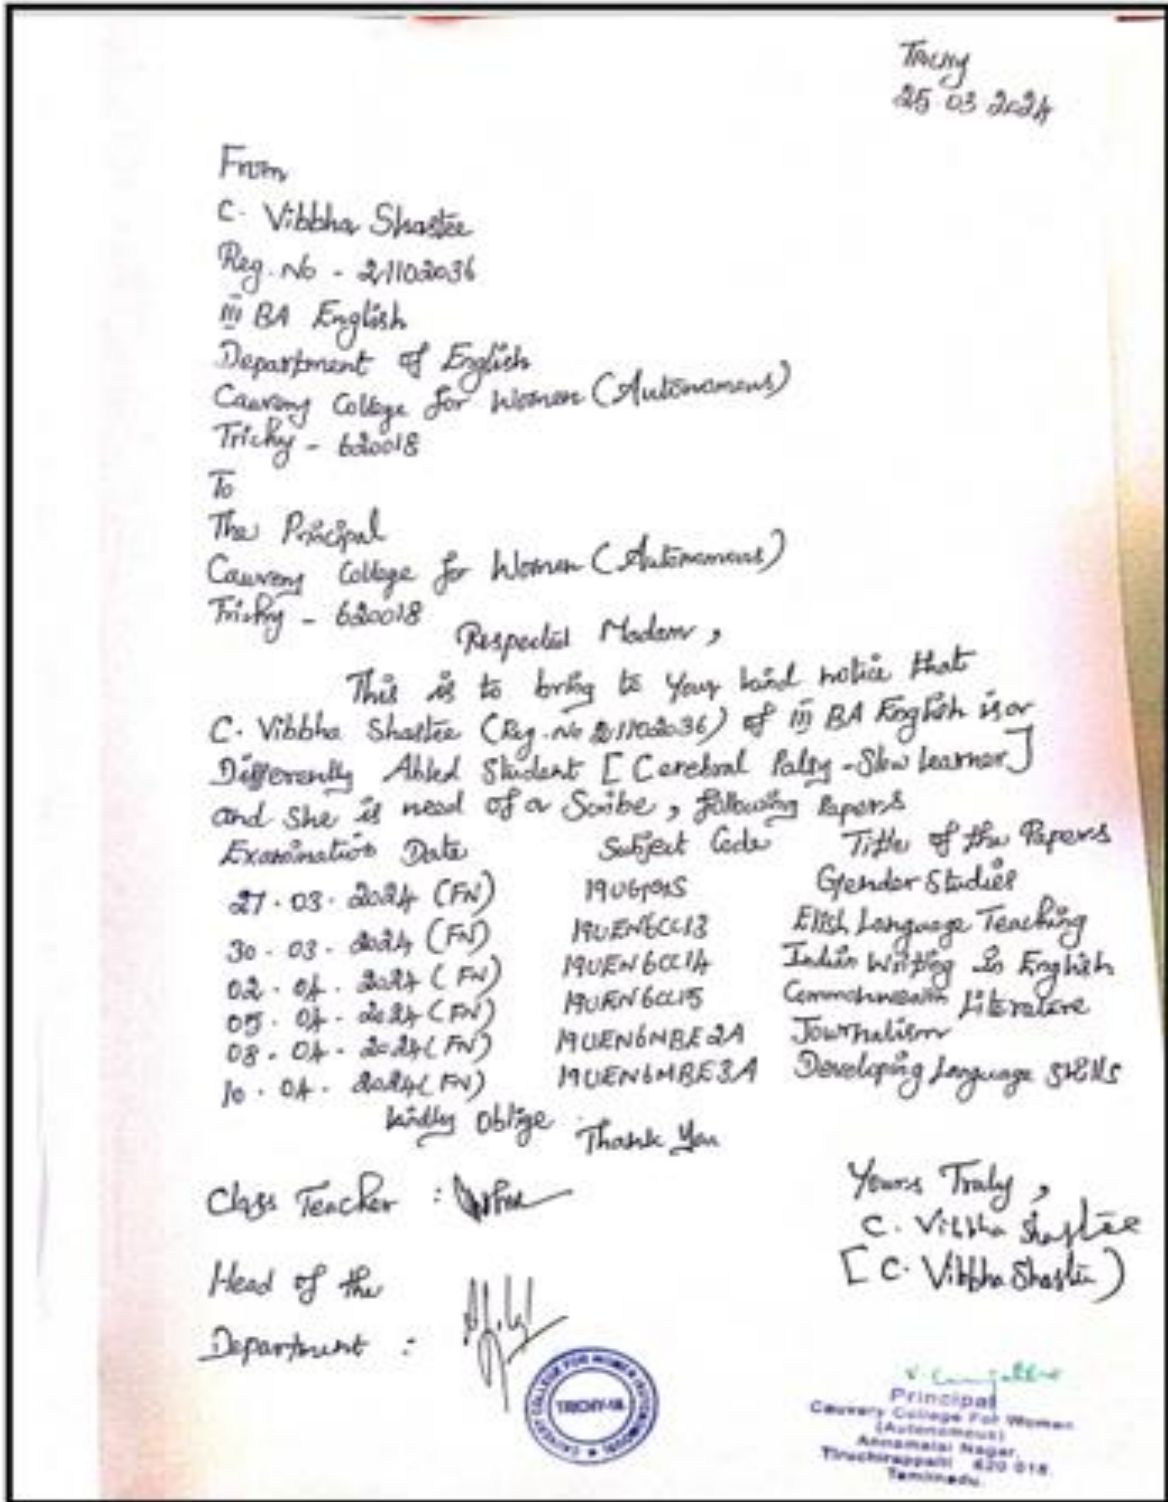 Trichy
25 03 2024
From
C. Vibbha Shastee
Reg. No - 21102036
III BA English
Department of English
Cauvery College for Women (Autonomous)
Trichy - 620018
To
The Principal
Cauvery College for Women (Autonomous)
Trichy - 620018
Respected Madam,
This is to bring to your kind notice that
C. Vibbha Shastee (Reg. No 21102036) of III BA English is a
Differently Abled Student [Cerebral Palsy - Slow Learner]
and she is need of a Scribe, following papers
Examination Date Subject Code Title of the Papers
27.03.2024 (FN) Gender Studies
30.03.2024 (FN) 19UEN6CC13 Elish Language Teaching
02.04.2024 (FN) 19UEN6CC14 Indian Writing in English
05.04.2024 (FN) 19UEN6CC15 Commonwealth Literature
08.04.2024 (FN) 19UEN6MBE2A Journalism
10.04.2024 (FN) 19UEN6MBE3A Developing Language Skills
kindly Oblige Thank You
Class Teacher :
Yours Truly,
C. Vibbha Shastee
[C. Vibbha Shastee)
Head of the
Department :
CAUVERY COLLEGE FOR WOMEN (AUTONOMOUS)
TRICHY-18.
Principal
Cauvery College For Women
(Autonomous)
Annamalai Nagar,
Tiruchirappalli 620 018.
Tamilnadu.